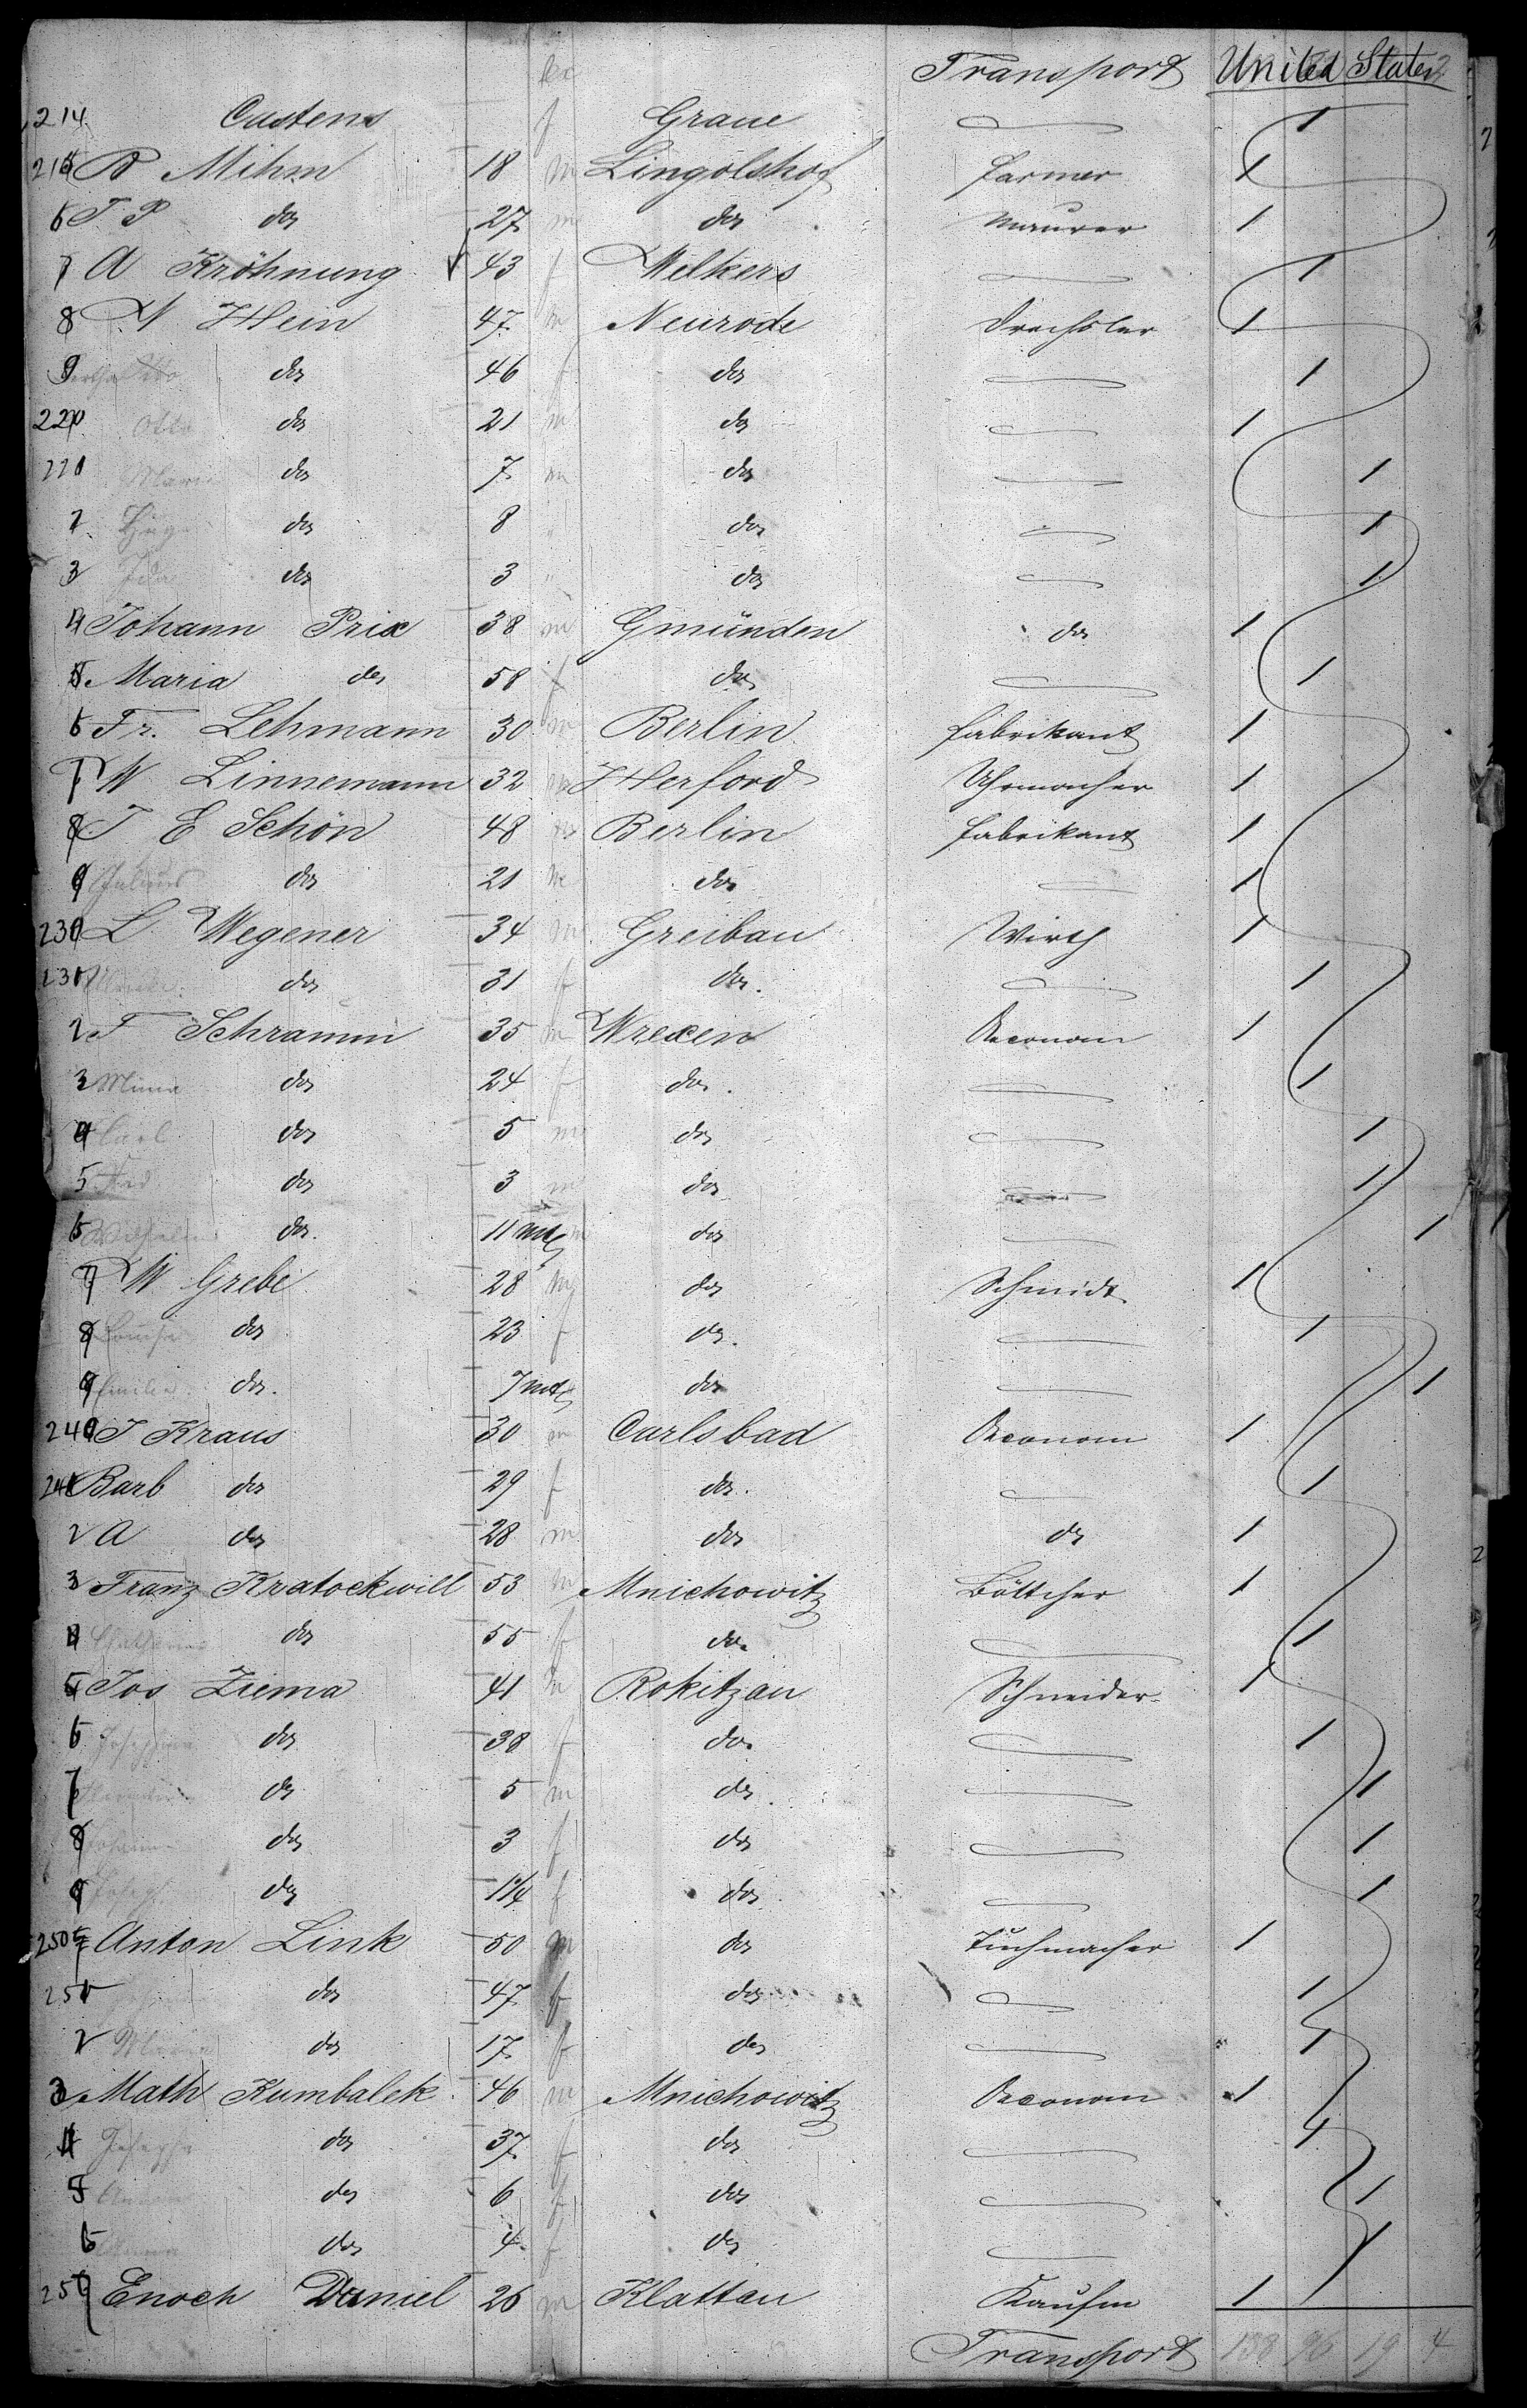 Transport United States
214 Custens f Graue
215 B Mihm 18 m Lingolshof farmer 1
6 T P do 27 m do Maurer 1
7 A Kröhnung 43 f Welkers 1
8 W Hein 47 m Neurode Drechsler 1
9 do 46 f do 1
220 Otto do 21 m do 1
221 Marie do 7 m do 1
2 Hugo do 8 " do 1
3 do 3 " do 1
4 Johann Prix 38 m Gmünden do 1
5 Maria do 58 f do 1
6 Fr. Lehmann 30 m Berlin fabrikant 1
7 W Linnemann 32 m Herford Uhrmacher 1
8 T E Schön 48 m Berlin fabrikant 1
9 Julius do 21 m do 1
230 L Wegener 34 m Greibau Wirth 1
231 do 31 f do 1
2 F Schramm 35 m Wrexen Oeconom 1
3 Mina do 24 f do 1
4 Carl do 5 m do 1
5 do 3 m do 1
6 Wilhelm do 11 mts m do 1
7 W Grebe 28 m do Schmidt 1
8 Louise do 23 f do 1
9 Emilie do 7 mts do 1
240 J Kraus 30 m Carlsbad Oeconom 1
241 Barb do 29 f do 1
2 A do 28 m do do 1
3 Franz Kratockwill 53 m Mnichowitz Böttcher 1
4 do 55 f do 1
5 Jos Ziema 41 m Rokitzan Schneider 1
6 Josephine do 38 f do 1
7 do 5 m do 1
8 Johanna do 3 f do 1
9 do 1 1/4 f do 1
250 Anton Link 50 m do Tuchmacher 1
251 do 47 f do 1
2 Maria do 17 f do 1
3 Math Kumbalek 46 m Mnichowitz Oeconom 1
4 Josepha do 37 f do 1
5 do 6 f do 1
6 do 4 f do 1
257 Enoch Daniel 26 m Klattau Kaufm 1
Transport 138 96 19 4